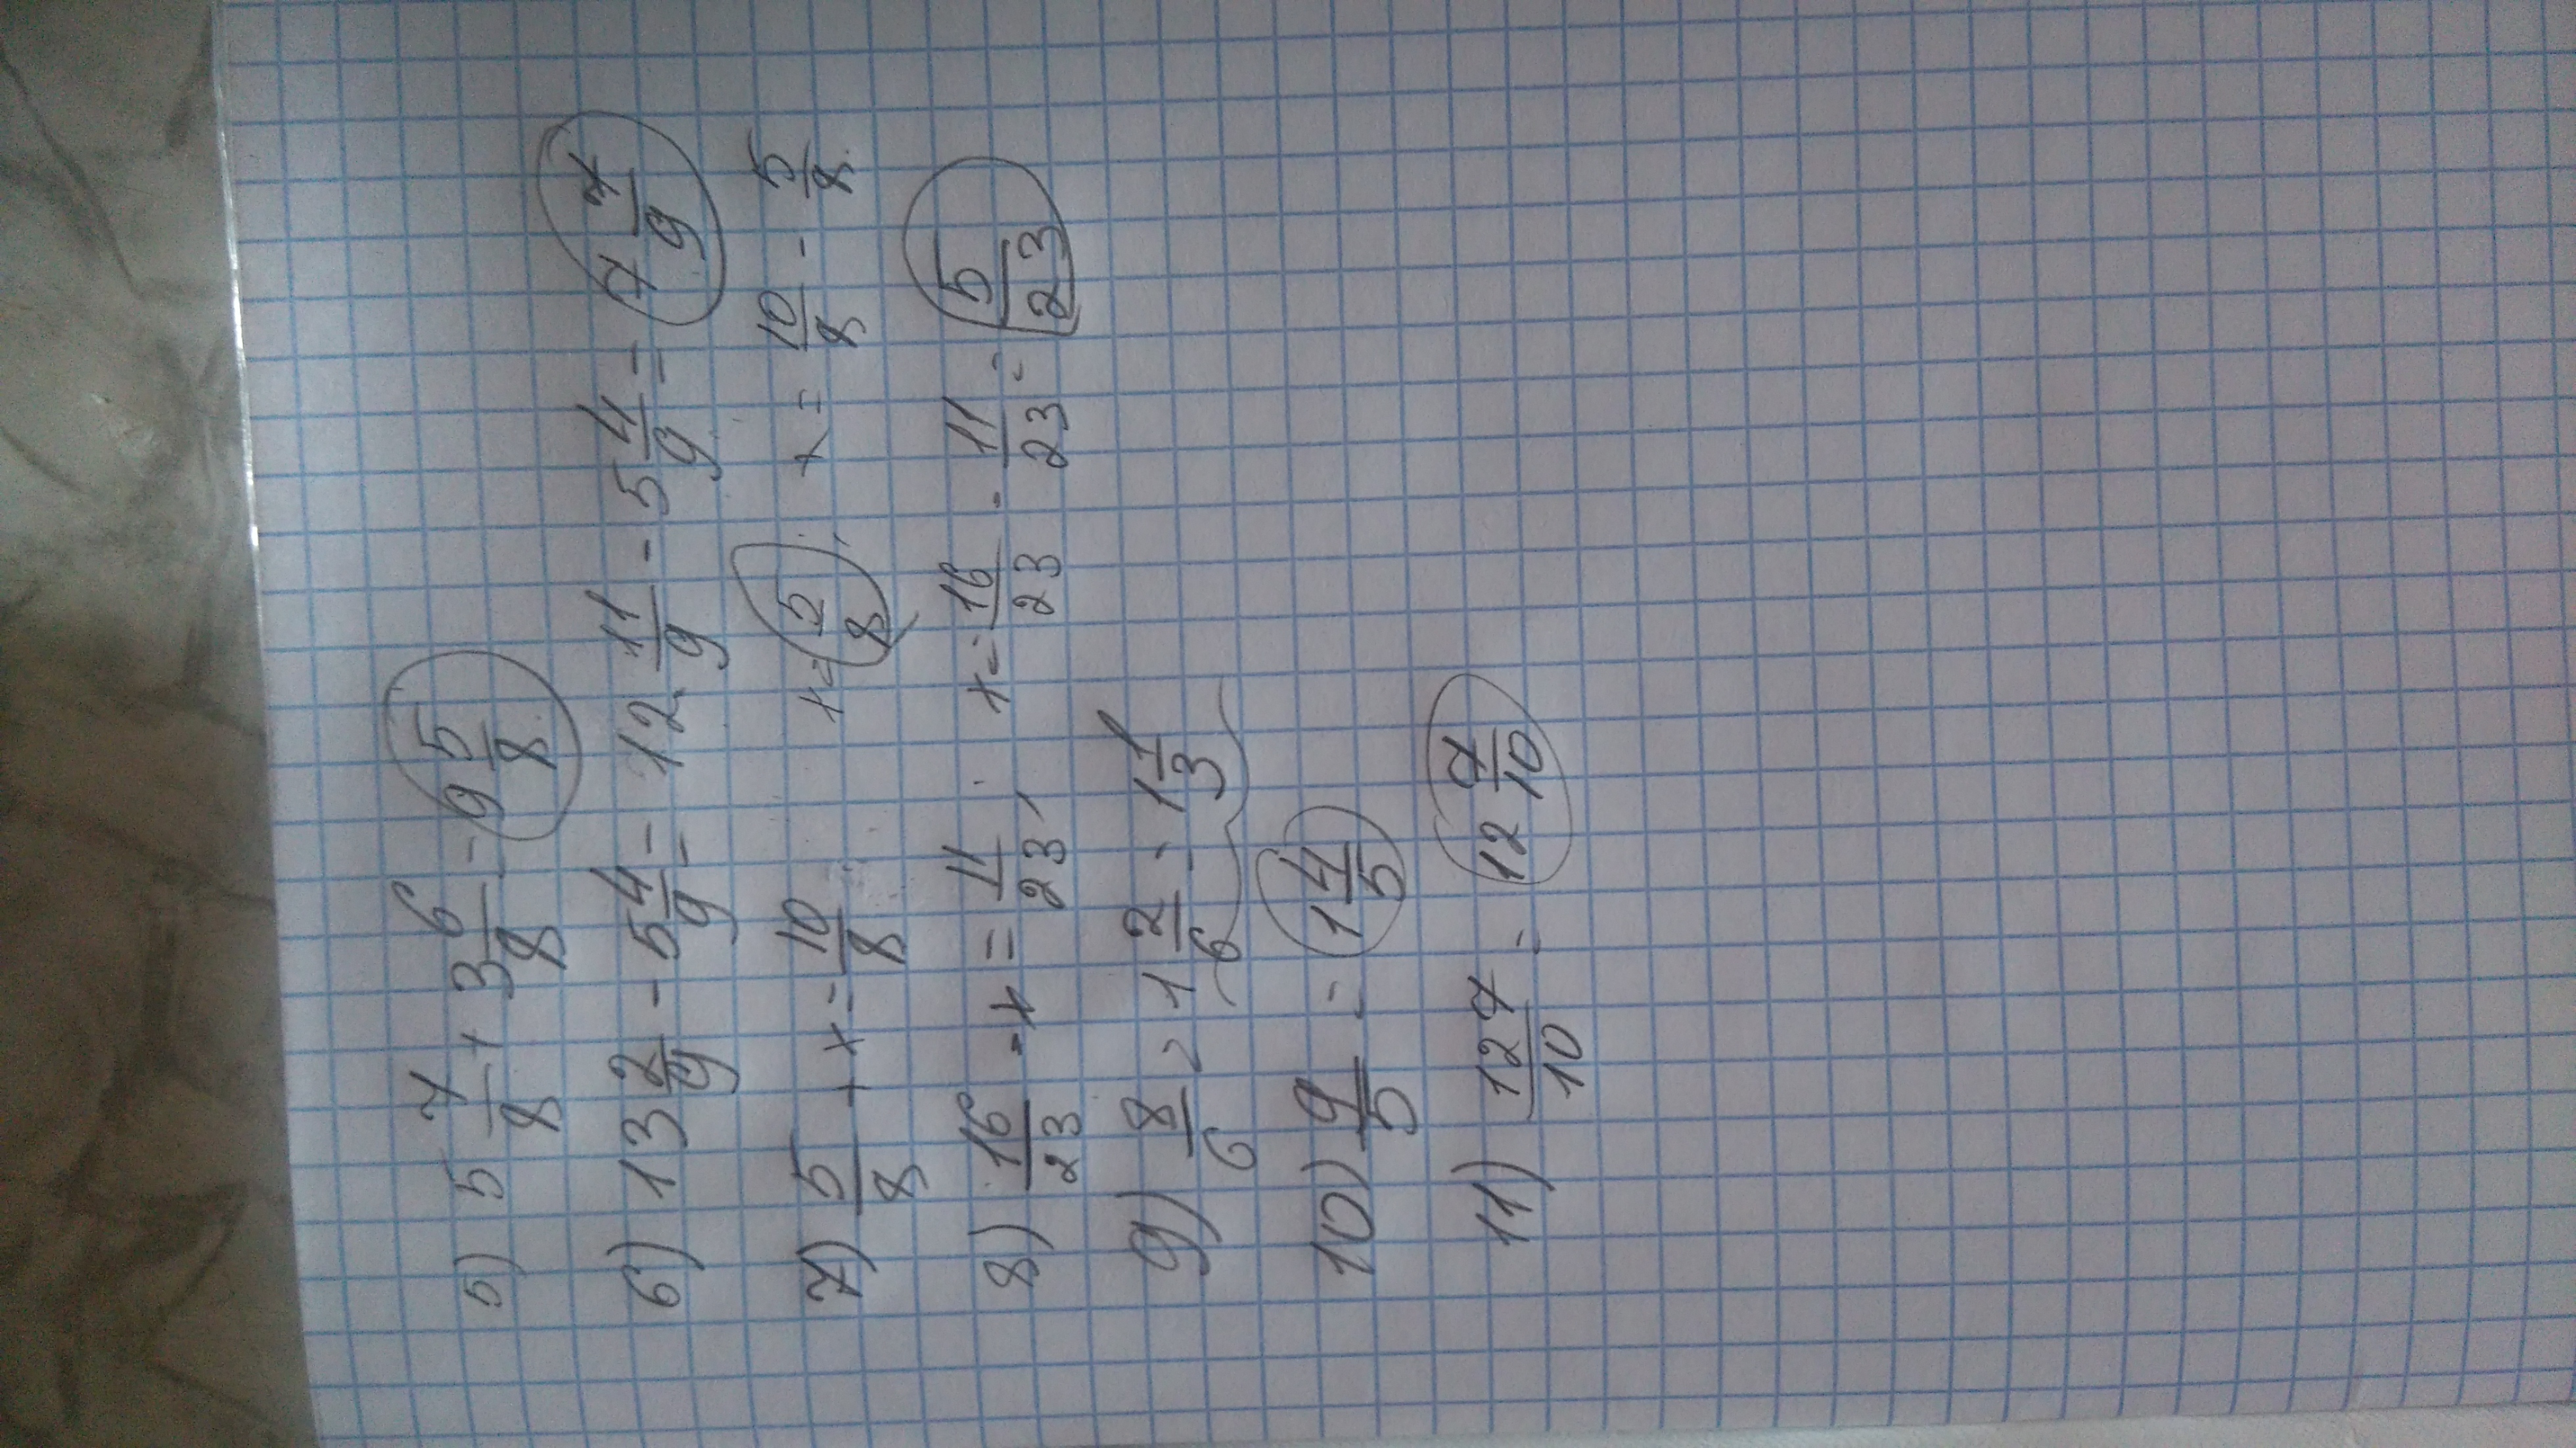 5) 5 7/8 + 3 6/8 = 9 5/8
6) 13 2/9 - 5 4/9 = 12 11/9 - 5 4/9 = 7 7/9
7) 5/8 + x = 10/8 x = 5/8 x = 10/8 - 5/8
8) 16/23 - x = 11/23, x = 16/23 - 11/23 = 5/23
9) 8/6 = 1 2/6 = 1 1/3
10) 9/5 = 1 4/5
11) 127/10 = 12 7/10